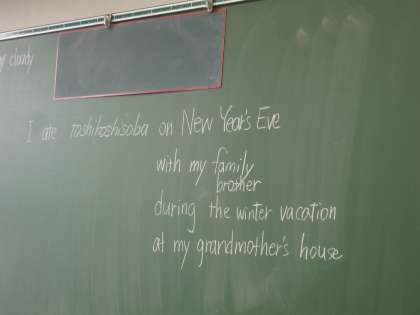 cloudy
I ate toshikoshisoba on New Year's Eve
with my family
brother
during the winter vacation
at my grandmother's house